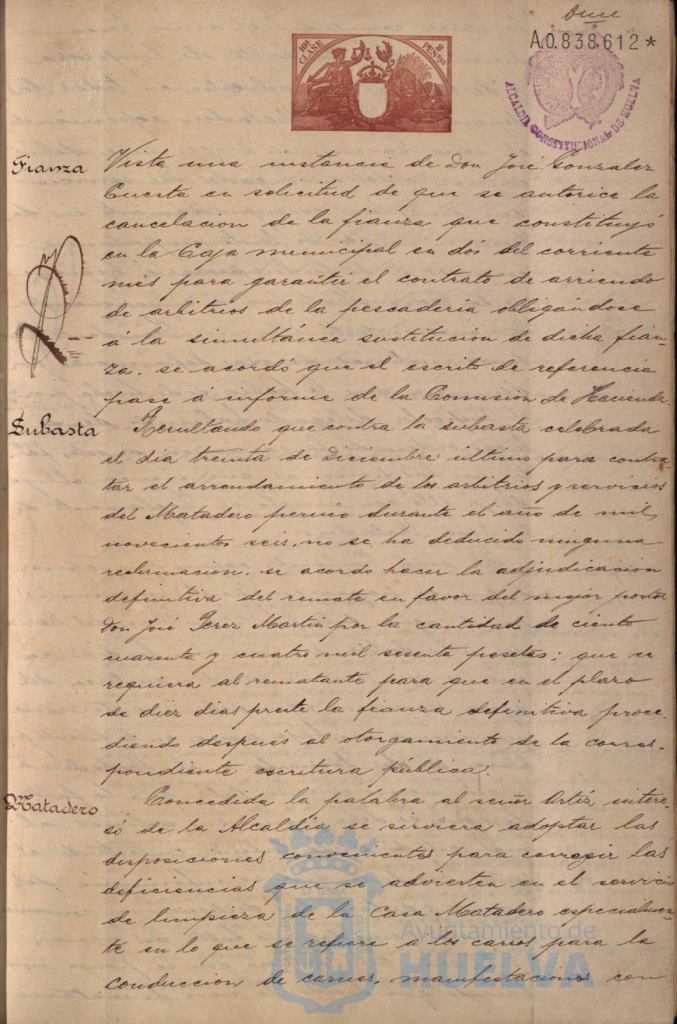 Once
10ª CLASE
2 PESETAS
A0.838,612*
ALCALDÍA CONSTITUCIONAL DE HUELVA
Fianza
Vista una instancia de Don José Gonzalez
Cuesta en solicitud de que se autorice la
cancelacion de la fianza que constituyó
en la Caja municipal en dós del corriente
mes para garantir el contrato de arriendo
de arbitrios de la pescadería obligándose
á la simultánea sustitucion de dicha fian-
za, se acordó que el escrito de referencia
pase á informe de la Comision de Hacienda.
Subasta
Resultando que contra la subasta celebrada
el dia treinta de Diciembre último para contra-
tar el arrendamiento de los arbitrios y servicios
del Matadero perneo durante el año de mil
novecientos seis, no se ha deducido ninguna
reclamacion, se acordo hacer la adjudicacion
definitiva del remate en favor del mejor postor
Don José Perez Martin por la cantidad de ciento
cuarenta y cuatro mil sesenta pesetas; que se
requiera al rematante para que en el plazo
de diez dias preste la fianza definitiva proce-
diendo después al otorgamiento de la corres-
pondiente escritura pública.
Matadero
Concedida la palabra al señor Ortiz intere-
só de la Alcaldía se sirviera adoptar las
disposiciones convenientes para corregir las
deficiencias que se advierten en el servicio
de limpieza de la Casa Matadero especialmen-
te en lo que se refiere a los carros para la
conduccion de carnes, manifestaciones con
Ayuntamiento de
HUELVA